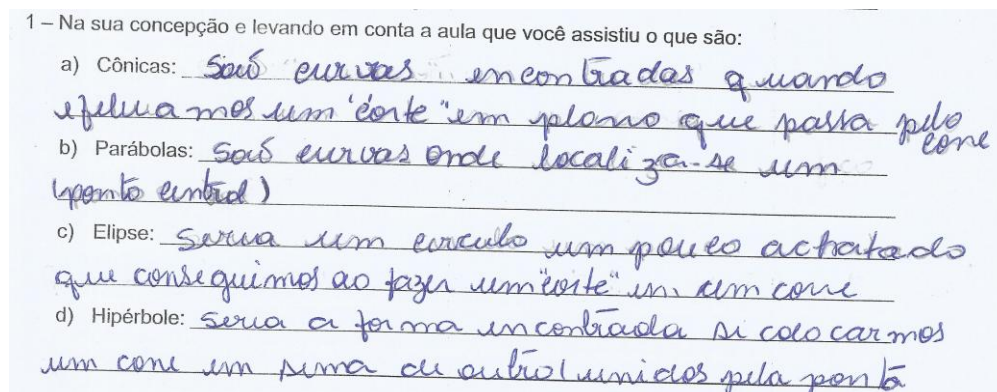 1 – Na sua concepção e levando em conta a aula que você assistiu o que são:
a) Cônicas: São curvas encontradas quando
efetuamos um "corte" em plano que passa pelo
cone
b) Parábolas: São curvas onde localiza-se um
(ponto central)
c) Elipse: Seria um circulo um pouco achatado
que conseguimos ao fazer um "corte" em um cone
d) Hipérbole: Seria a forma encontrada si colocarmos
um cone em sima du outro (unidos pela ponta